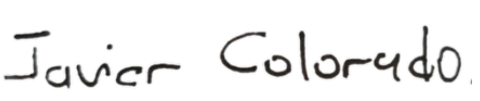 Javier Colorado.